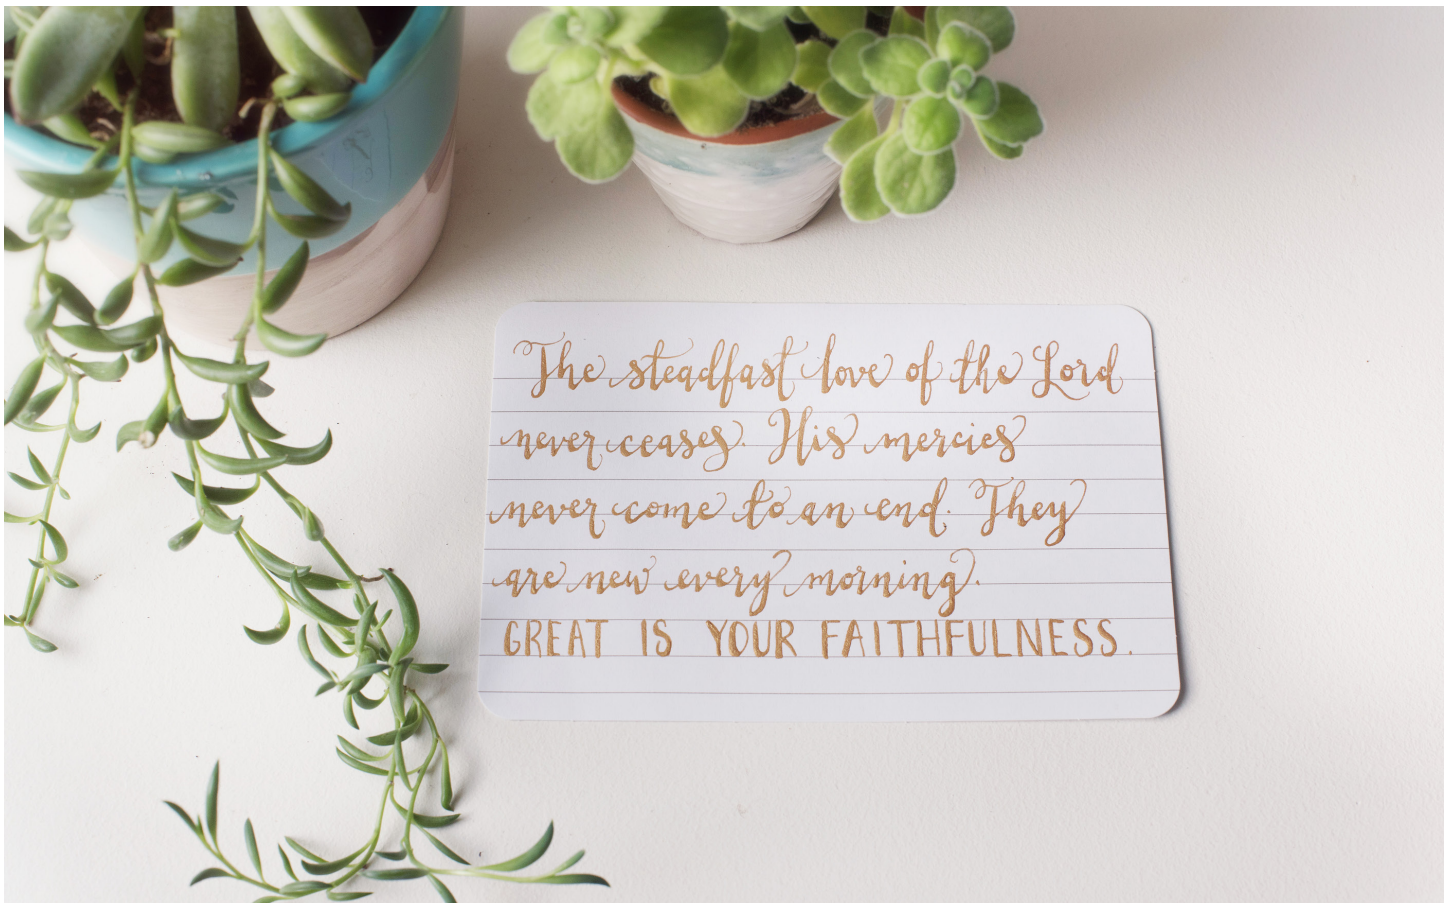 The steadfast love of the Lord
never ceases. His mercies
never come to an end. They
are new every morning.
GREAT IS YOUR FAITHFULNESS.